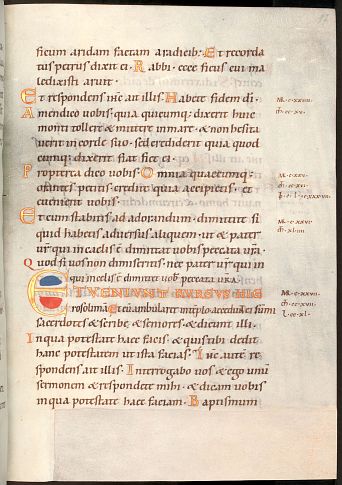 ficum aridam factam aradicib; Et recorda
tus petrus dixit ei. Rabbi. ecce ficus cui ma
ledixisti aruit.
Et respondens ihc ait illis. Habete fidem di.
Amen dico uobis. quia quicumq; dixerit huic
monti tollere & mittere in mare. & non hesita
uerit in corde suo. sed crediderit quia quod
cumq; dixerit fiat fiet ei.
Propterea dico uobis. Omnia quaecumq;
orantes petitis. credite quia accipietis. et
euenient uobis.
Et cum stabitis ad adorandum. dimittite si
quid habetis aduersus aliquem. ut & pater
ur qui in caelis e dimittat uobis peccata ura.
Quod si uos non dimiseritis. nec pater ur qui in
qui in celis e dimittet uob peccata ura.
ET VENIUNT RURSUS HIE
rosolima. Et cum ambularet in teplo. accedunt
sacerdotes & scribe & seniores. & dicunt illi.
In qua potestate haec facis. & quis tibi dedit
hanc potestatem ut ista facias. Ihc aute re
spondens ait illis. Interrogabo uos & ego unu
sermonem & respondete mihi. & dicam uobis
in qua potestate haec faciam. Baptismum